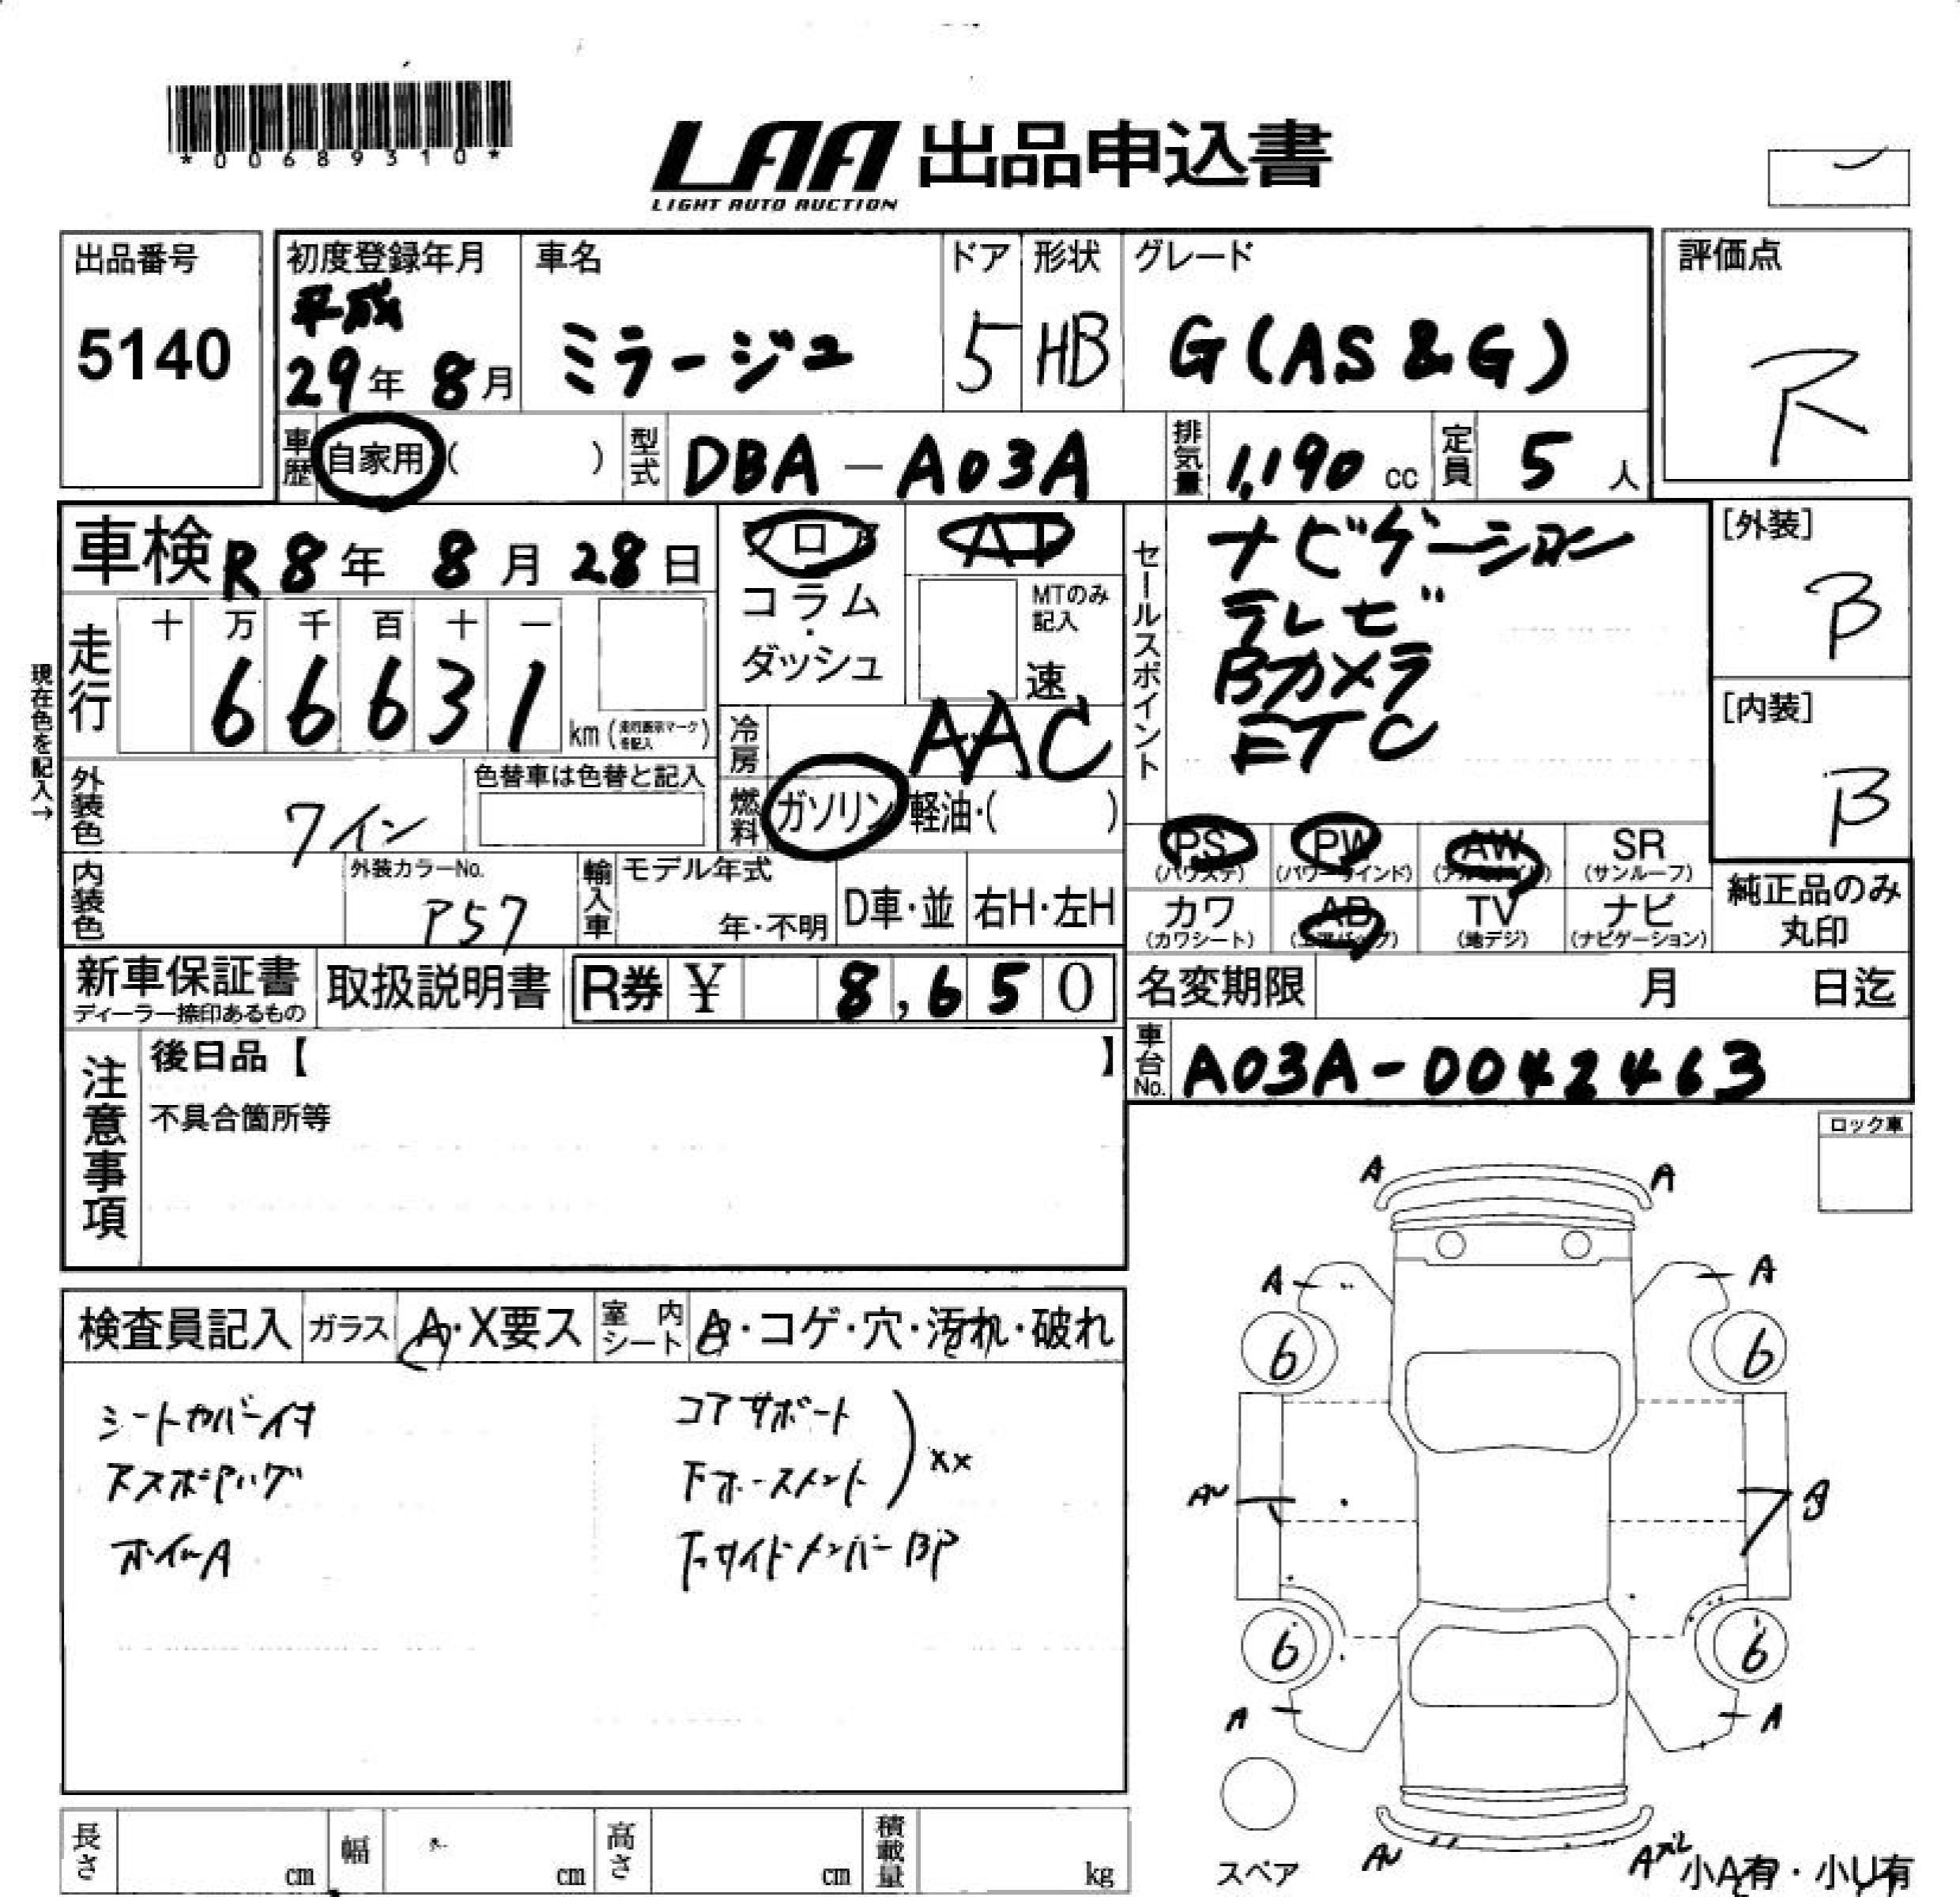 *00689310*
LAA 出品申込書
LIGHT AUTO AUCTION
出品番号
5140
初度登録年月
平成
29年 8月
車名
ミラージュ
ドア
5
形状
HB
グレード
G(AS&G)
評価点
R
車歴 自家用 ( )
型式 DBA-A03A
排気量 1,190 cc
定員 5 人
車検 R8年 8月 28日
走行
十 万 千 百 十 一
6 6 6 3 1
km (走行表示マークを記入)
現在色を記入→
フロア
コラム
・
ダッシュ
AT
MTのみ記入
速
冷房 AAC
燃料 ガソリン 軽油・( )
外装色 ワイン
色替車は色替と記入
内装色
外装カラーNo.
P57
輸入車
モデル年式
年・不明
D車・並
右H・左H
セールスポイント
ナビゲーション
テレビ
Bカメラ
ETC
[外装]
B
[内装]
B
PS (パワステ)
PW (パワーウインド)
AW (アルミホイル)
SR (サンルーフ)
カワ (カワシート)
AB (エアバッグ)
TV (地デジ)
ナビ (ナビゲーション)
純正品のみ
丸印
新車保証書
ディーラー捺印あるもの
取扱説明書
R券 ¥ 8,650
名変期限 月 日迄
車台No. A03A-0042463
注意事項
後日品【 】
不具合箇所等
ロック車
検査員記入
ガラス A・X要ス
室内シート A・コゲ・穴・汚れ・破れ
シートカバー付
コアサポート
xx
ホイールA
サイドメンバーBP
A A
A A
6 6
AU B
6 6
A A
スペア
AU A
小A有・小U有
長さ cm
幅 cm
高さ cm
積載量 kg